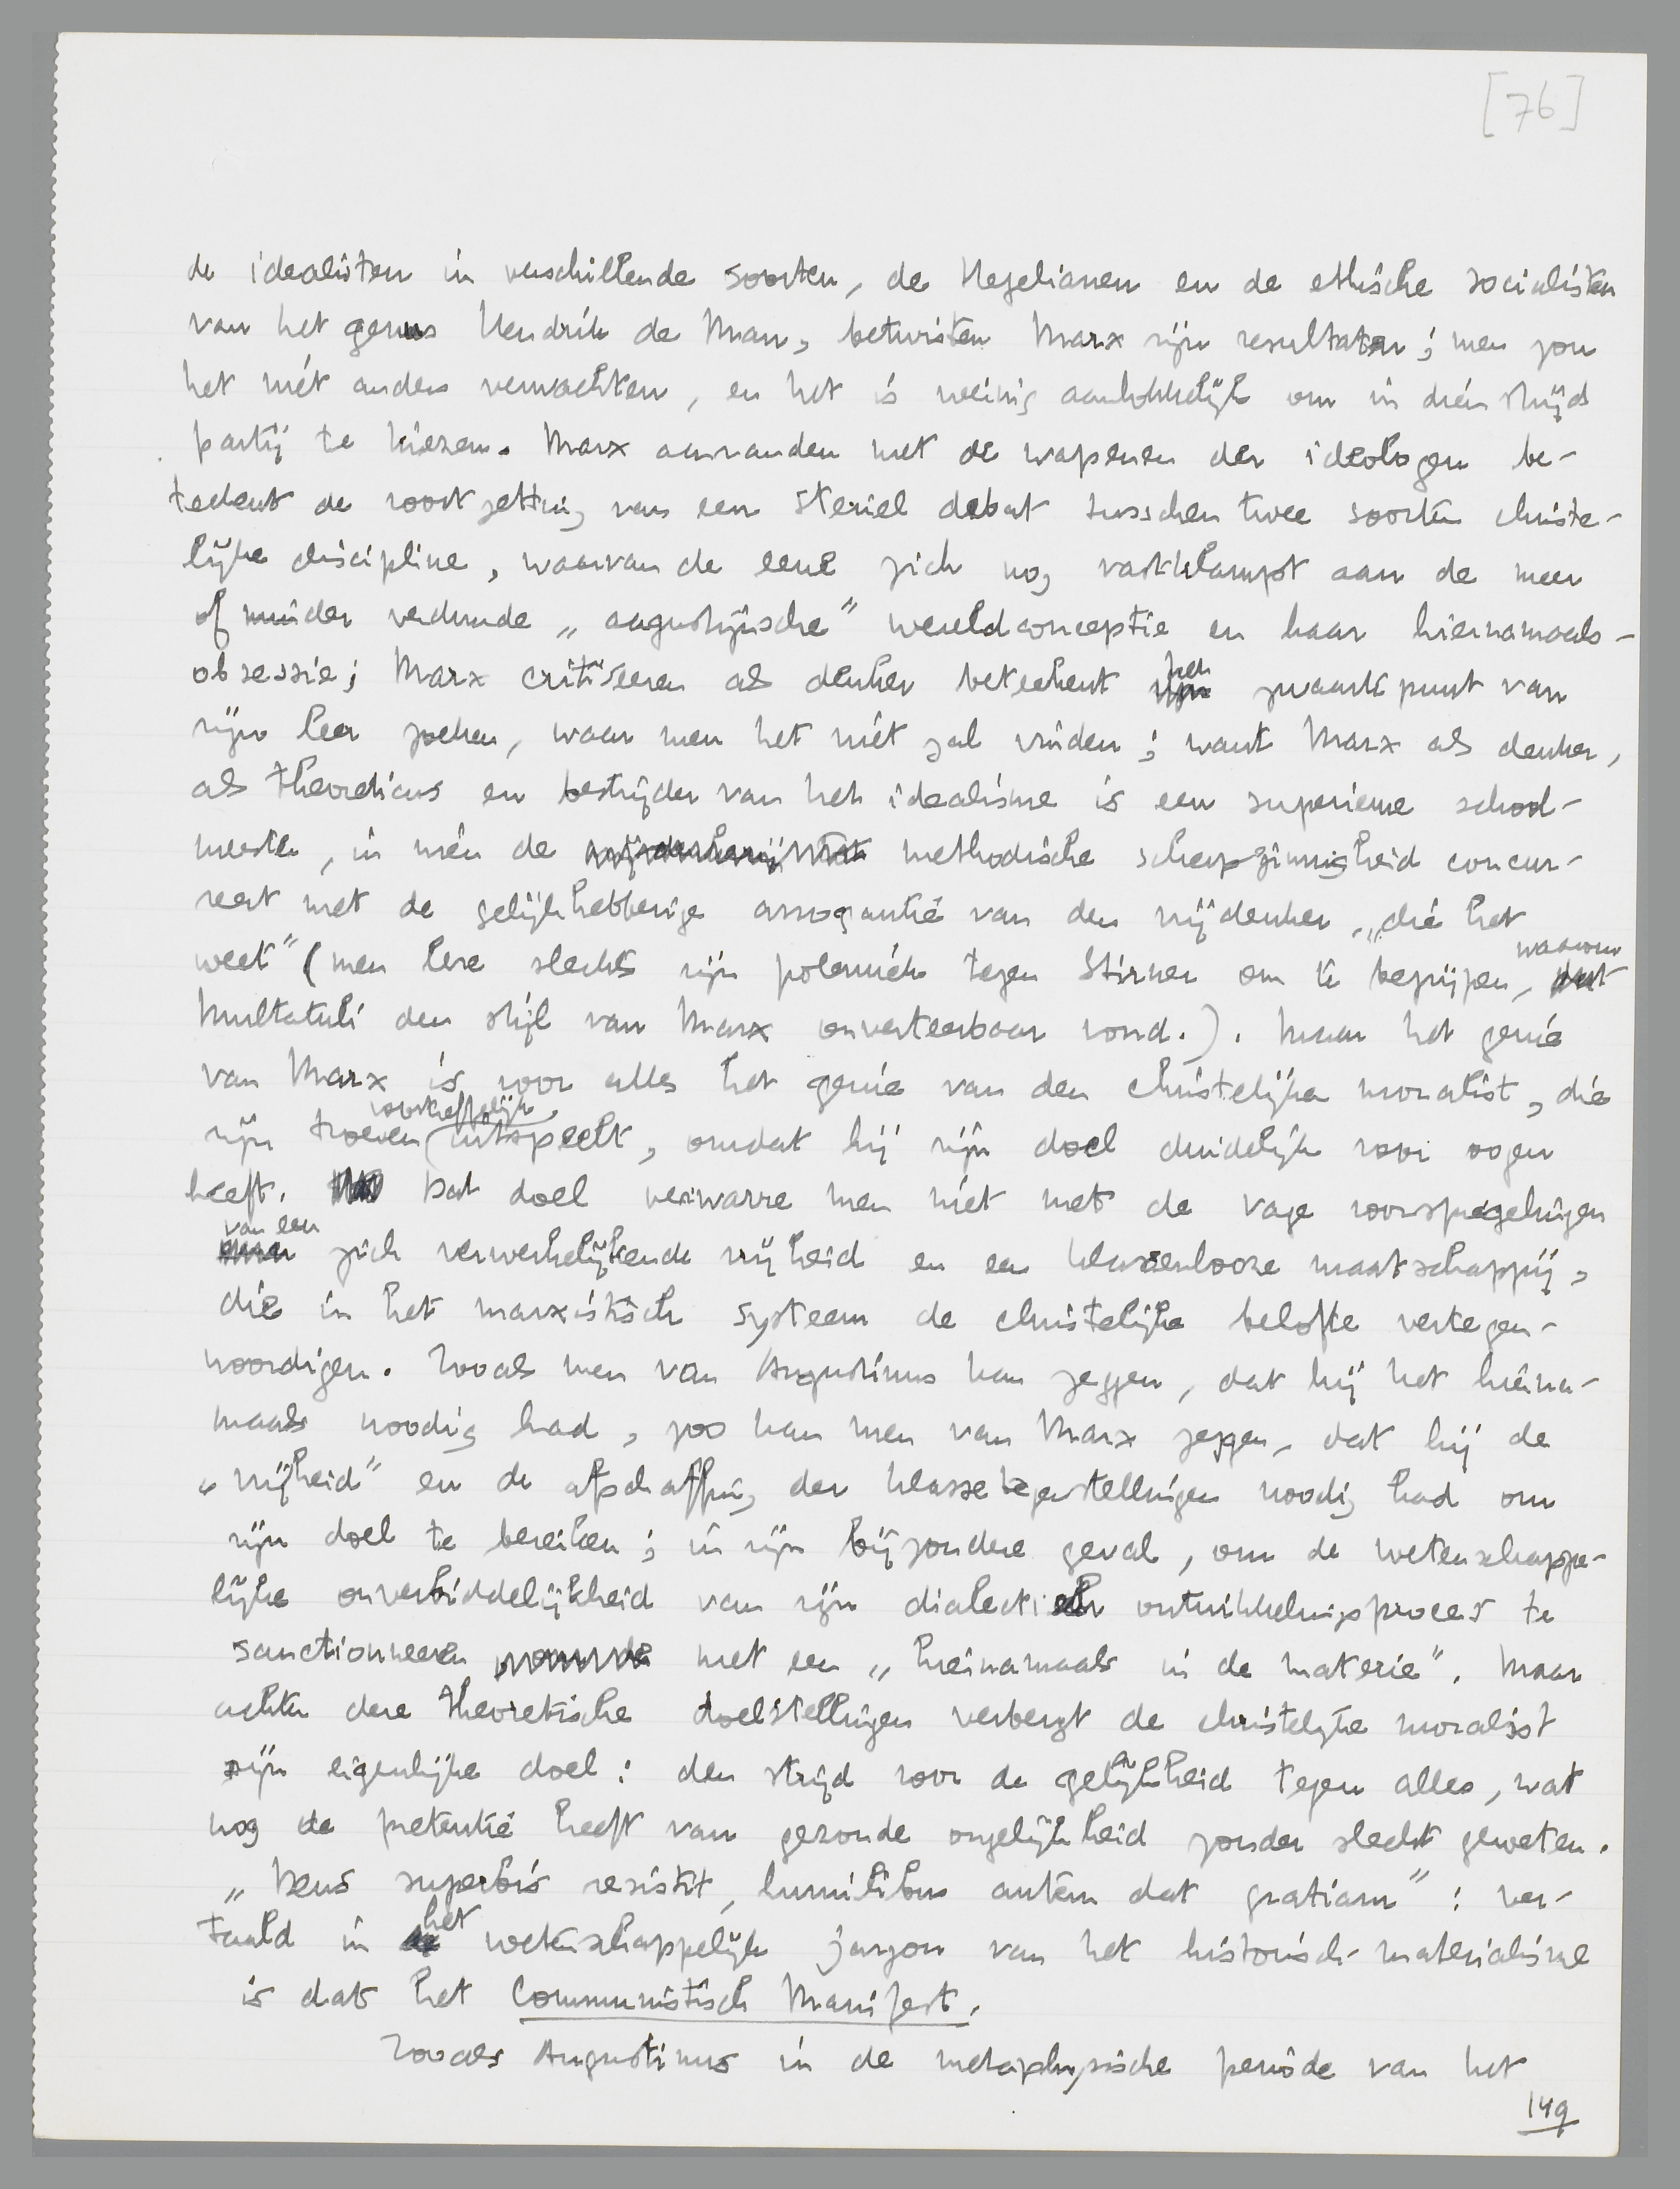 [76]
de idealisten in verschillende soorten, de Hegelianen en de ethische socialisten
van het genus Hendrik de Man, betwisten Marx zijn resultaten; men zou
het niet anders verwachten, en het is weinig aanlokkelijk om in dien strijd
partij te kiezen. Marx aanranden met de wapenen der ideologen be-
teekent de voortzetting van een steriel debat tusschen twee soorten christe-
lijke discipline, waarvan de eene zich nog vastklampt aan de meer
of minder verdunde „augustijnsche" wereldconceptie en haar hiernamaals-
obsessie; Marx critiseeren als denker beteekent het zwaartepunt van
zijn leer zoeken, waar men het niét zal vinden; want Marx als denker,
als theoreticus en bestrijder van het idealisme is een superieure school-
meester, in wien de methodische scherpzinnigheid concur-
reert met de gelijkhebberige arrogantie van den vrijdenker, „die het
weet" (men leze slechts zijn polemiek tegen Stirner om te begrijpen, waarom
Multatuli den stijl van Marx onverteerbaar vond.). Maar het genie
van Marx is voor alles het genie van den christelijken moralist, die
zijn troeven voortreffelijk uitspeelt, omdat hij zijn doel duidelijk voor oogen
heeft. Dat doel verwarre men niet met de vage voorspiegelingen
van een zich verwerkelijkende vrijheid en een klassenlooze maatschappij,
die in het marxistisch systeem de christelijke belofte vertegen-
woordigen. Zooals men van Augustinus kan zeggen, dat hij het hierna-
maals noodig had, zoo kan men van Marx zeggen, dat hij de
„vrijheid" en de afschaffing der klassetegenstellingen noodig had om
zijn doel te bereiken; in zijn bijzondere geval, om de wetenschappe-
lijke onverbiddelijkheid van zijn dialectisch ontwikkelingsproces te
sanctionneeren met een „hiernamaals in de materie". Maar
achter deze theoretische doelstellingen verbergt de christelijke moralist
zijn eigenlijke doel: den strijd voor de gelijkheid tegen alles, wat
nog de pretentie heeft van gezonde ongelijkheid zonder slecht geweten.
„Deus superbis resistit, humilibus autem dat gratiam": ver-
taald in het wetenschappelijk jargon van het historisch-materialisme
is dat het Communistisch Manifest.
Zooals Augustinus in de metaphysische periode van het
149